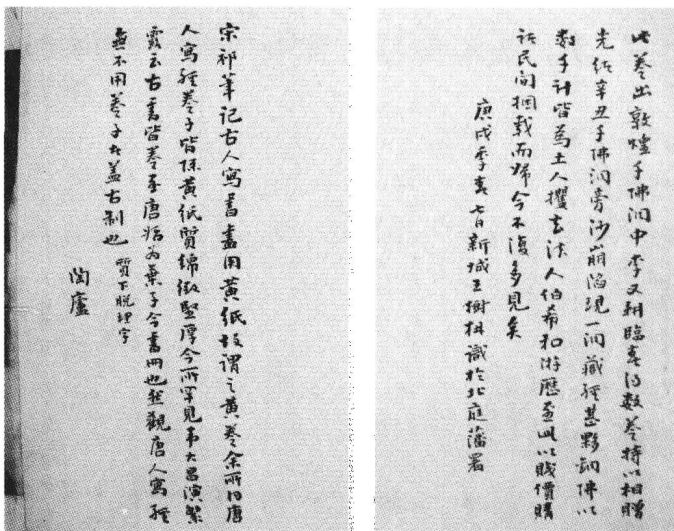 此卷出敦煌千佛洞中李又得數卷持以相贈
光緒辛丑千佛洞旁沙崩陷現一洞藏經甚夥銅佛以
數千計皆為土人攫去法人伯希和游歷至此以賤價購
諸民間捆載而歸今不復多見矣
庚戌季春七日新城王樹枏識於北庭藩署
宋祁筆記古人寫書盡用黃紙故謂之黃卷余所得唐
人寫經卷子皆係黃紙質綿緻堅厚今所罕見大昌演繁
露云古書皆卷至唐始為葉子今書冊也然觀唐人寫經
無不用卷子蓋古制也 質下脫理字
陶廬